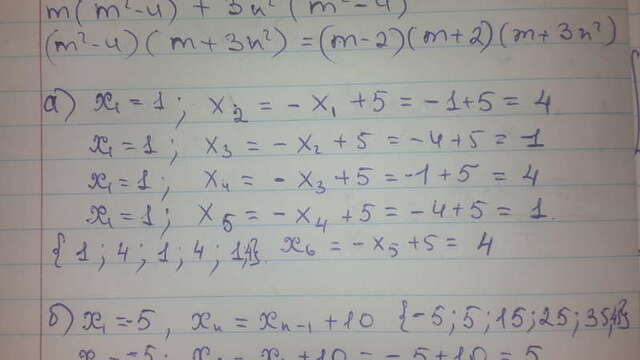 m(m²-4) + 3n²(m²-4)
(m²-4)(m+3n²) = (m-2)(m+2)(m+3n²)
а) x₁ = 1 ; x₂ = - x₁ + 5 = -1+5 = 4
x₁ = 1 ; x₃ = - x₂ + 5 = -4+5 = 1
x₁ = 1 ; x₄ = - x₃ + 5 = -1+5 = 4
x₁ = 1 ; x₅ = - x₄ + 5 = -4+5 = 1
{1 ; 4 ; 1 ; 4 ; 1;4}. x₆ = - x₅ + 5 = 4
б) x₁ = -5 , xₙ = xₙ₋₁ + 10 {-5 ; 5 ; 15 ; 25 ; 35